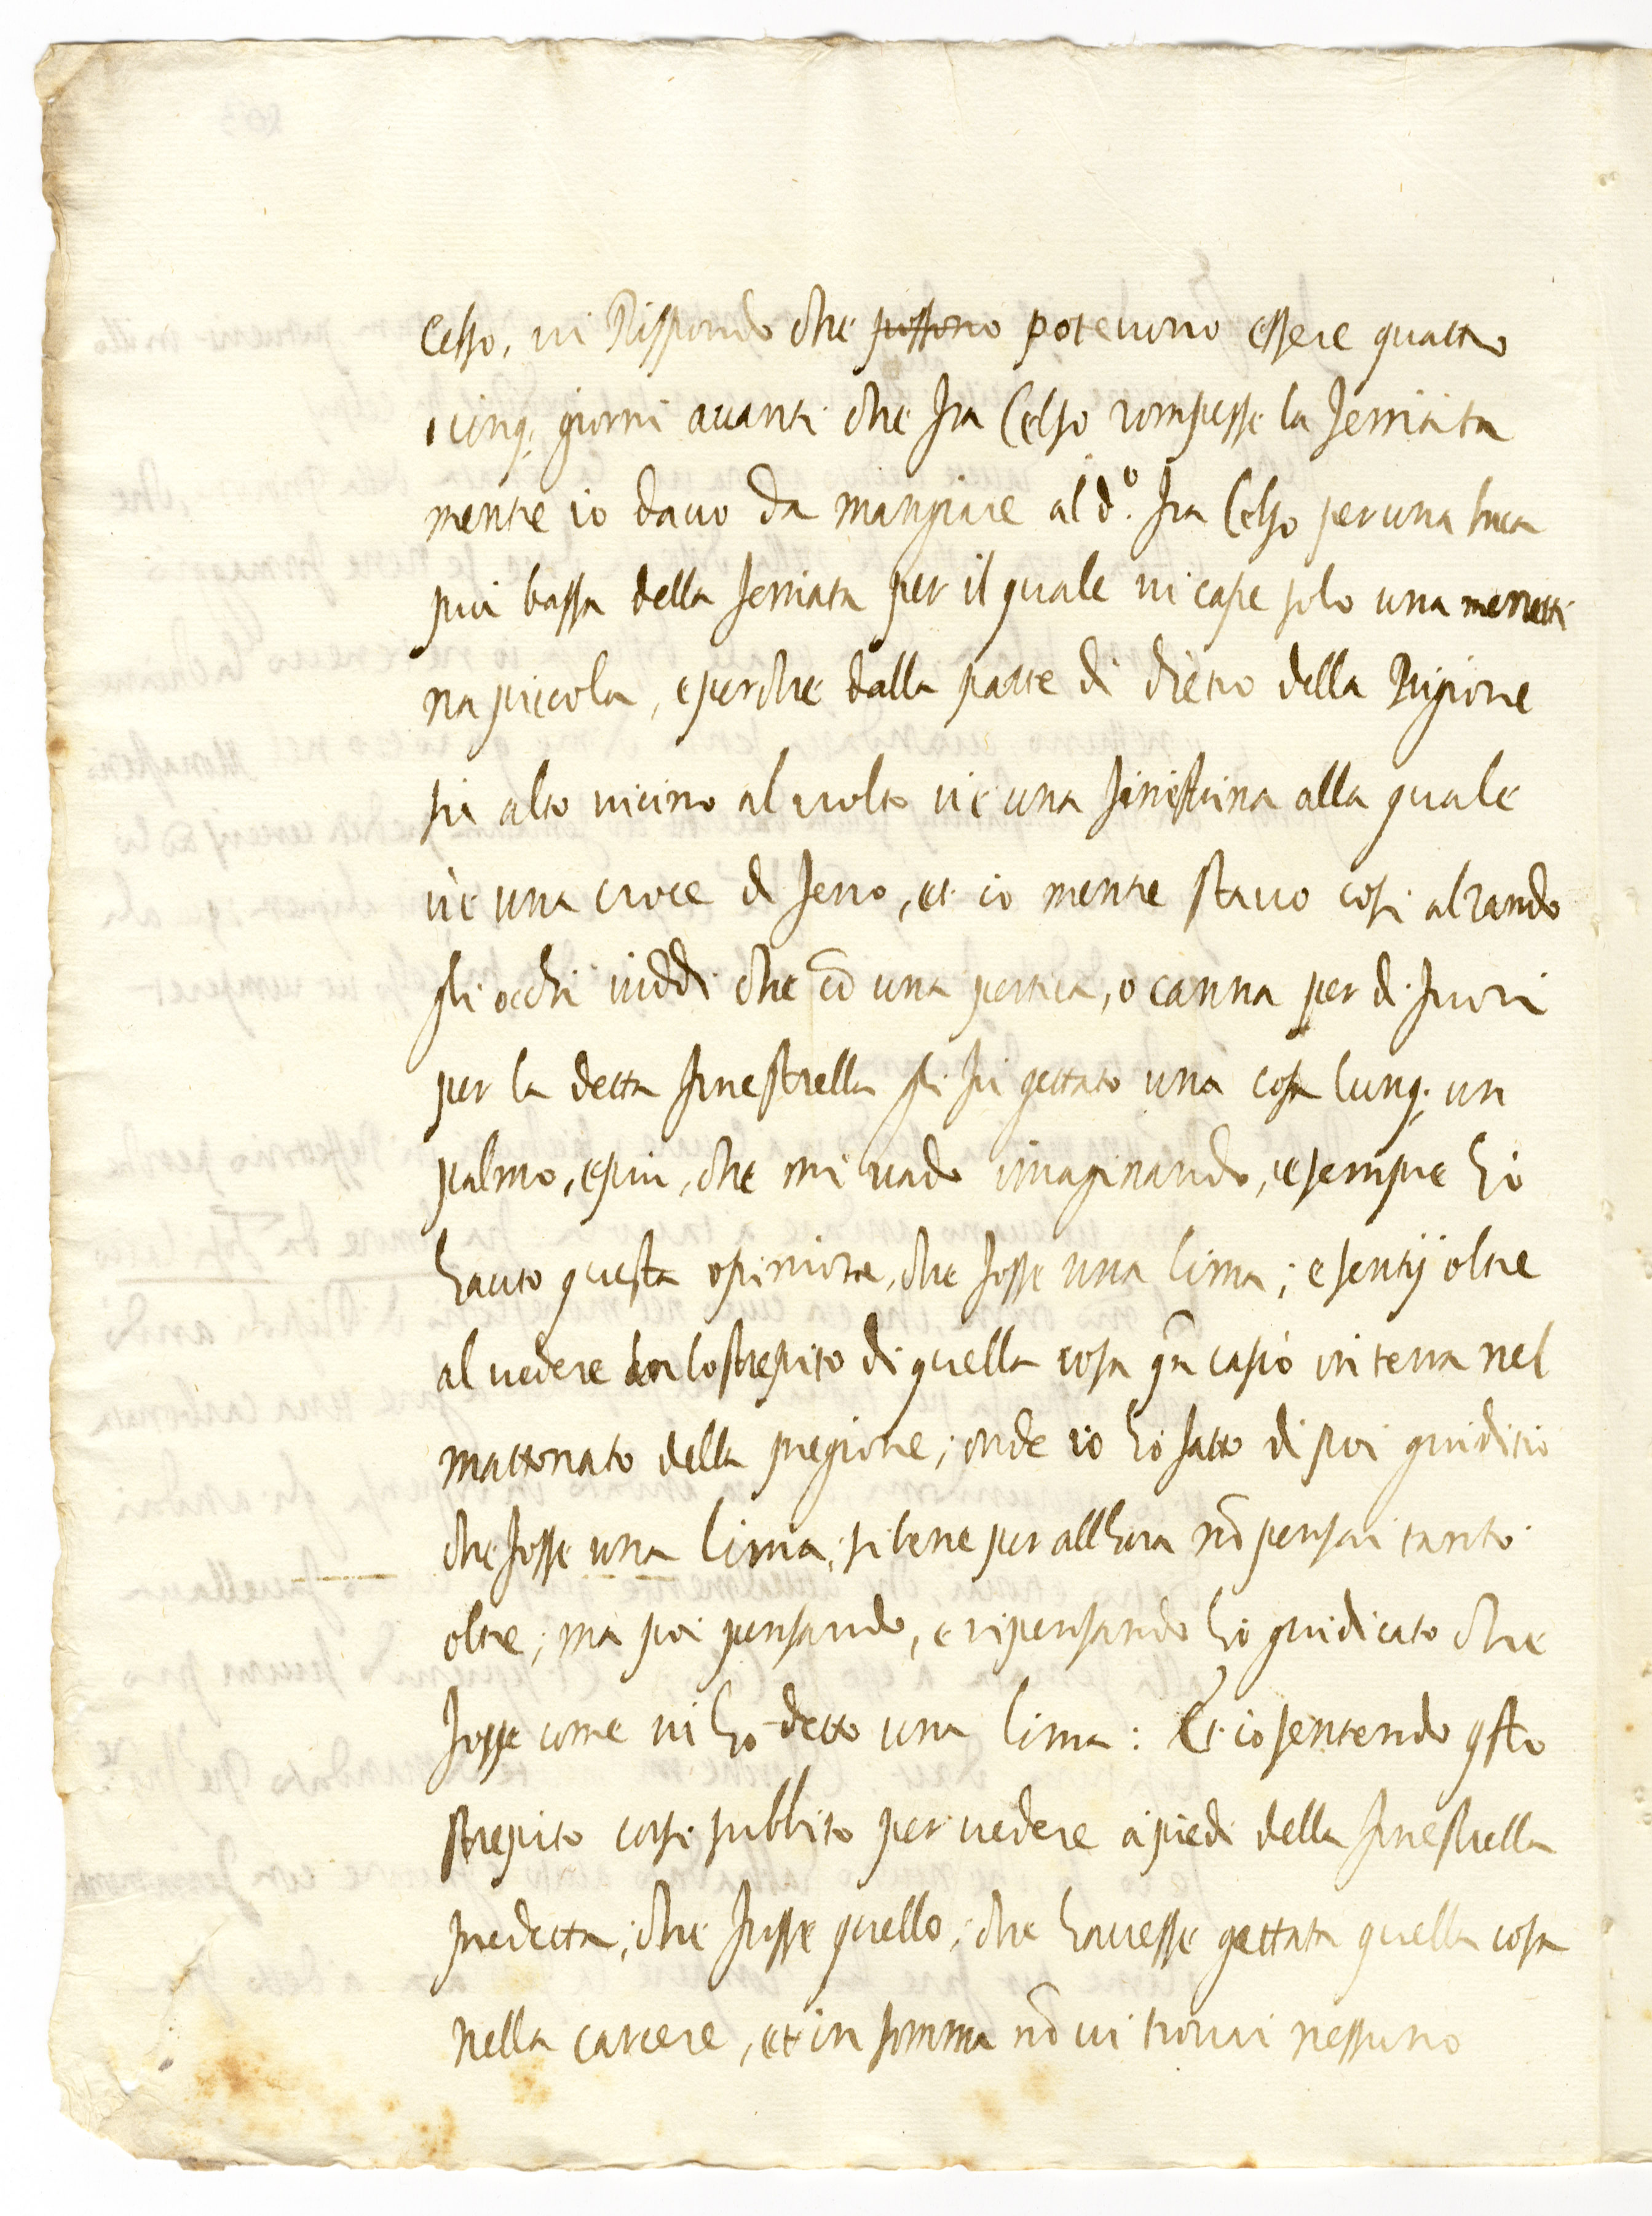 Celso, vi Rispondo che possono potevono essere quattro
o cinq; giorni avanti che fra Celso rompesse la ferriata
mentre io davo da mangiare al d.º fra Celso per una buca
piu bassa della ferriata per il quale vi cape solo una mezzetti
na piccola, e perche dalla parte di dietro della Prigione
su alto vicino al volto vi e una finistrina alla quale
vi è una croce di ferro, et io mentre stavo cosi alzando
gli occhi viddi che cō una pertica, o canna per di fuori
per la detta finestrella gli fu gettato una cosa lung; un
palmo, e piu, che mi vado imaginando, e sempre hò
hauto questa opinione, che fosse una lima; e sentij oltre
al vedere lo strepito di quella cosa qn̄ cascò in terra nel
mattonato della pregione; onde io hò fatto di poi giuditio
che fosse una lima; si bene per allhora nō pensai tanto
oltre; ma poi pensando, e ripensando hò giudicato che
fosse come vi hò detto una lima: Et io sentendo qsto
strepito corsi subbito per vedere à piedi della finestrella
predetta, che fusse quello, che havesse gettata quella cosa
nella carcere, et in somma nō vi trovai nessuno